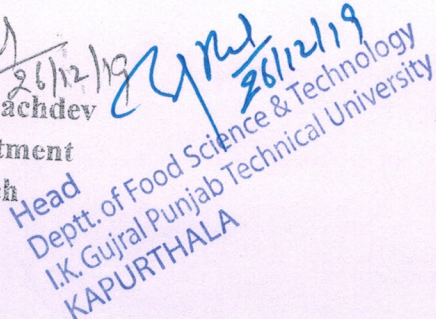 26/12/19
26/12/19
achdev
tment
h
Head
Deptt. of Food Science & Technology
I.K. Gujral Punjab Technical University
KAPURTHALA